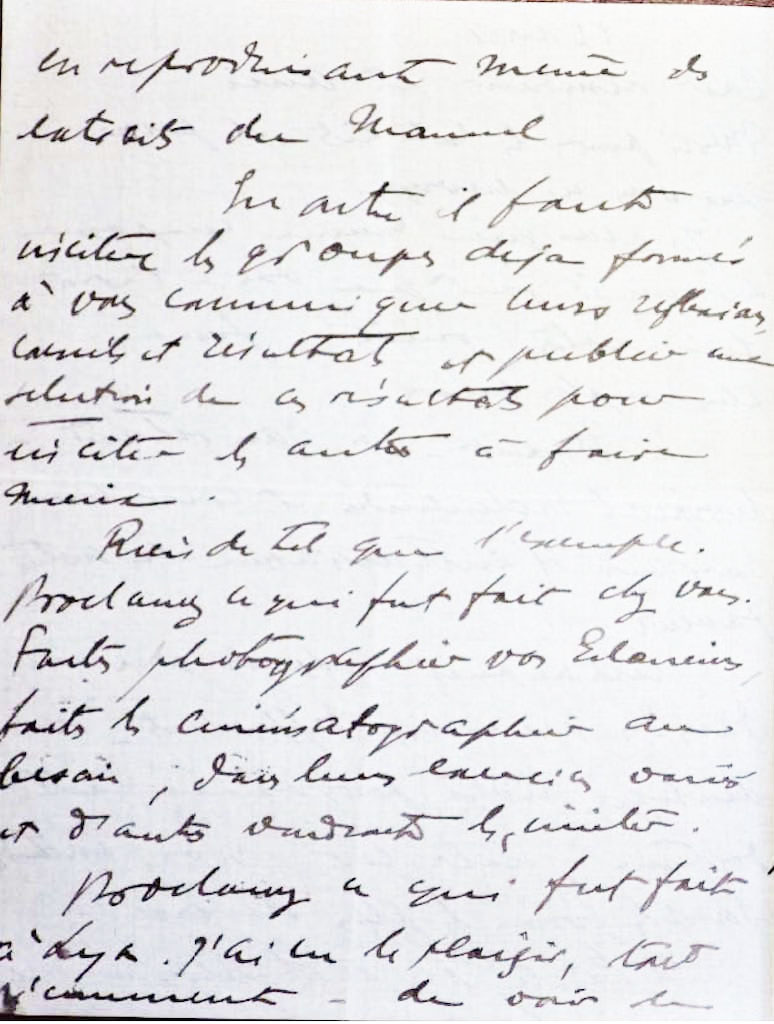 en reproduisant même des
extraits du Manuel
En outre il faut
inciter les groupes déjà formés
à vous communiquer leurs réflexions,
conseils et résultats et publier une
sélection de ces résultats pour
inciter les autres à faire
mieux.
Rien de tel que l'exemple.
Proclamez ce qui fut fait chez vous.
Faites photographier vos Eclaireurs,
faites les cinématographier au
besoin, dans leurs exercices variés
et d'autres voudront les imiter.
Proclamez ce qui fut fait
à Lyon. J'ai eu le plaisir, tout
récemment - de voir en